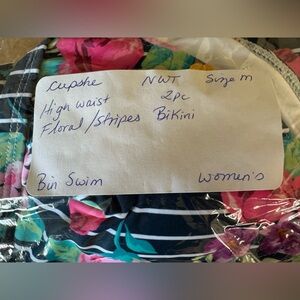 Cupshe NWT Size M
High waist 2pc
Floral/Stripes Bikini
Bin Swim Women's